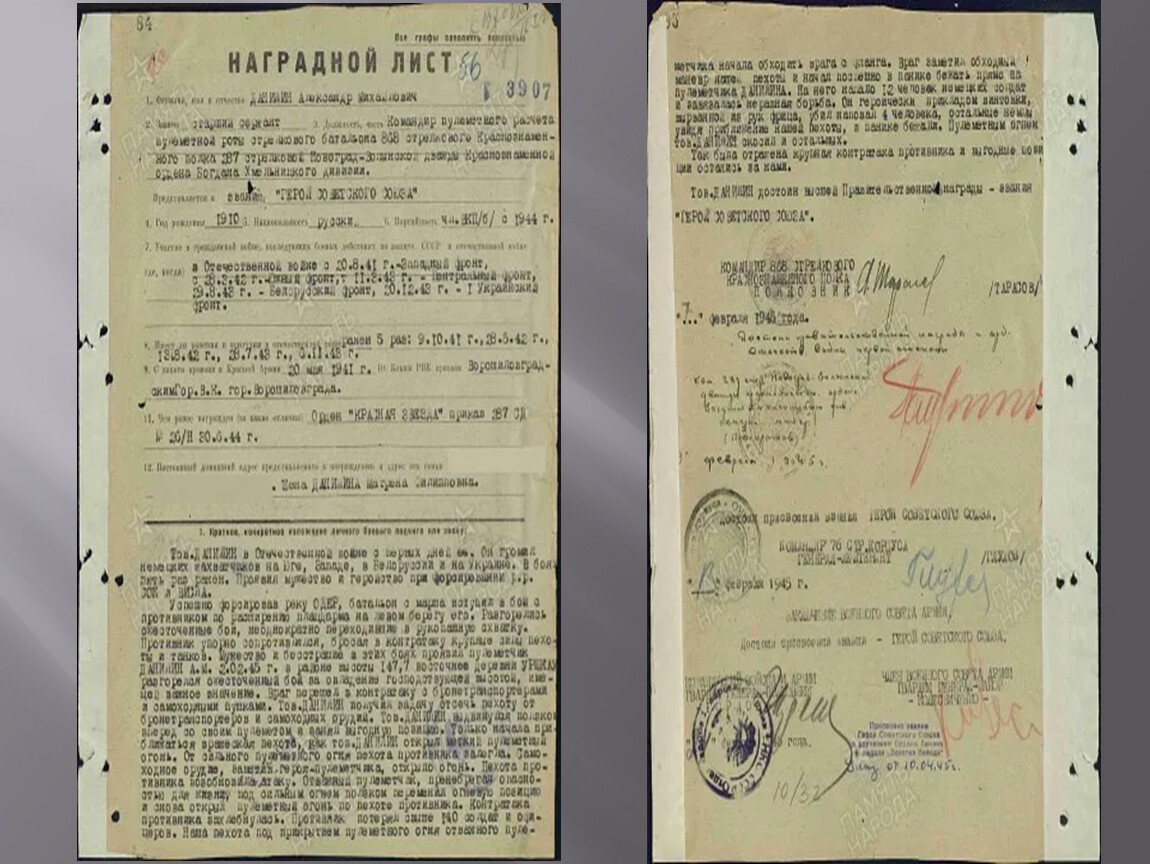 84
Все графы заполнять полностью
НАГРАДНОЙ ЛИСТ
56
3907
1. Фамилия, имя и отчество ДАНИЛИН Александр Михайлович
2. Звание старший сержант 3. Должность, часть Командир пулеметного расчета
пулеметной роты стрелкового батальона 868 стрелкового Краснознамен-
ного полка 287 стрелковой Новоград-Волынской дважды Краснознаменной
ордена Богдана Хмельницкого дивизии.
Представляется к званию "ГЕРОЙ СОВЕТСКОГО СОЮЗА"
4. Год рождения 1910 5. Национальность русский 6. Партийность чл.ВКП/б/ с 1944 г.
7. Участие в гражданской войне, последующих боевых действиях по защите СССР и отечественной войне
(где, когда) в Отечественной войне с 20.8.41 г.-Западный фронт,
с 28.3.42 г.-Южный фронт, с 11.3.43 г. - Центральный фронт,
29.8.43 г. - Белорусский фронт, 20.12.43 - I Украинский
фронт.
8. Имеет ли ранения и контузии в отечественной войне ранен 5 раз: 9.10.41 г., 28.5.42 г.,
13.8.42 г., 28.7.43 г., 6.11.43 г.
9. С какого времени в Красной Армии 20 мая 1941 г. 10. Каким РВК призван Ворошиловград-
скимГор.В.К. гор.Ворошиловграда.
11. Чем ранее награжден (за какие отличия) Орден "КРАСНАЯ ЗВЕЗДА" приказ 287 СД
№ 26/Н 30.6.44 г.
12. Постоянный домашний адрес представляемого к награждению и адрес его семьи
Жена ДАНИЛИНА Матрена Филипповна.
1. Краткое, конкретное изложение личного боевого подвига или заслуг
Тов.ДАНИЛИН в Отечественной войне с первых дней ее. Он громил
немецких захватчиков на Юге, Западе, в Белоруссии и на Украине. В боях
пять раз ранен. Проявил мужество и геройство при форсировании р.р.
СОЖ и ВИСЛА.
Успешно форсировав реку ОДЕР, батальон с марша вступил в бой с
противником по расширению плацдарма на левом берегу его. Разгорелись
ожесточенные бои, неоднократно переходившие в рукопашную схватку.
Противник упорно сопротивлялся, бросал в контратаку крупные силы пехо-
ты и танков. Мужество и бесстрашие в этих боях проявил пулеметчик
ДАНИЛИН А.М. 2.02.45 г. в районе высоты 147,7 восточнее деревни
разгорелся ожесточенный бой за овладение господствующей высотой, име-
щей важное значение. Враг перешел в контратаку с бронетранспортерами
и самоходными пушками. Тов.ДАНИЛИН получил задачу отсечь пехоту от
бронетранспортеров и самоходных орудий. Тов.ДАНИЛИН выдвинулся ползком
вперед со своим пулеметом и занял выгодную позицию. Только начала при-
ближаться вражеская пехота, как тов.ДАНИЛИН открыл меткий пулеметный
огонь. От сильного пулеметного огня пехота противника залегла. Само-
ходное орудие, заметив героя-пулеметчика, открыло огонь. Пехота про-
тивника возобновила атаку. Отважный пулеметчик, пренебрегая опасно-
стью для жизни, под сильным огнем ползком переменил огневую позицию
и снова открыл пулеметный огонь по пехоте противника. Контратака
противника захлебнулась. Противник потерял свыше 140 солдат и офи-
церов. Наша пехота под прикрытием пулеметного огня отважного пуле-
метчика начала обходить врага с фланга. Враг заметил обходный
маневр нашей пехоты и начал поспешно в панике бежать прямо на
пулеметчика ДАНИЛИНА. На него напало 12 человек немецких солдат
и завязалась неравная борьба. Он героически прикладом винтовки,
вырванной из рук фрица, убил наповал 4 человека, остальные немцы
увидя приближение нашей пехоты, в панике бежали. Пулеметным огнем
тов.ДАНИЛИН скосил и остальных.
Так была отражена крупная контратака противника и выгодные пози
ции остались за нами.
Тов.ДАНИЛИН достоин высшей Правительственной награды - звания
"ГЕРОЙ СОВЕТСКОГО СОЮЗА".
КОМАНДИР 868 СТРЕЛКОВОГО
КРАСНОЗНАМЕННОГО ПОЛКА
ПОЛКОВНИК /ТАРАСОВ/
"7" февраля 1945 года.
Достоин правительственной награды - орд.
Отечеств. Войны первой степени
февраля 1945 г.
Достоин присвоения звания ГЕРОЙ СОВЕТСКОГО СОЮЗА.
КОМАНДИР 76 СТР.КОРПУСА
ГЕНЕРАЛ-ЛЕЙТЕНАНТ /ГЛУХОВ/
февраля 1945 г.
ЗАКЛЮЧЕНИЕ ВОЕННОГО СОВЕТА АРМИИ,
Достоин присвоения звания - ГЕРОЙ СОВЕТСКОГО СОЮЗА.
ЧЛЕН ВОЕННОГО СОВЕТА АРМИИ
ГВАРДИИ ГЕНЕРАЛ-МАЙОР
Присвоено звание
Героя Советского Союза
с вручением Ордена Ленина
и медали "Золотая Звезда"
Указ от 10.04.45г.
10/32
ПАМЯТЬ
НАРОДА